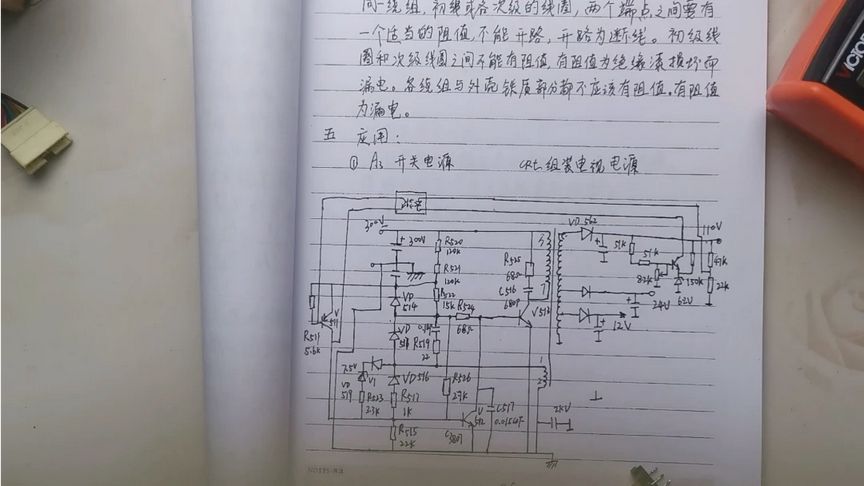 同一绕组,初级或各次级的线圈,两个端点之间要有
一个适当的阻值,不能开路,开路为断线。初级线
圈和次级线圈之间不能有阻值,有阻值为绝缘漆损坏即
漏电。各绕组与外壳铁质部分都不应该有阻值,有阻值
为漏电。
五 应用:
① A3 开关电源 CRT组装电视电源
VD562
110V
300V
+ 300V
R520
120K
R521
120K
R522
15K
R525
68Ω
C516
680P
51K
51K
82K
150K
6.2V
47K
22K
24V
12V
R524
68Ω
V513
VD
514
V
511
R511
5.6K
VD
518
R519
22
7.5V
VD
519
R523
3.3K
VD516
R517
1K
R526
27K
V
512
C517
0.015uF
2KV
R515
22K
VICTOR